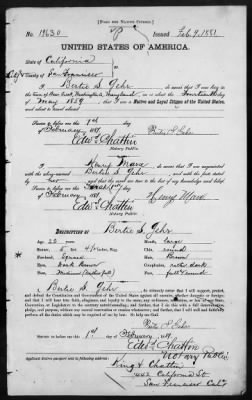 [FORM FOR NATIVE CITIZEN.]
No. 19630 Issued Feb. 9, 1881
UNITED STATES OF AMERICA.
State of California
County of San Francisco
I, Bertie S. Gehr, do
Maryland, on the Fourteenth day
of May 1859; that I am a Native and Loyal Citizen of the United States,
Sworn to before me this 1st
day of February 1881
Bertie S. Gehr
Edw. Chattin
Notary Public.
I, Henry Marx, do swear that I am acquainted
with the above named Bertie S. Gehr, and with the facts stated
to the best of my knowledge and belief.
Sworn to before me this First (1st)
day of February 1881
Henry Marx
Edw. Chattin
Notary Public.
DESCRIPTION OF Bertie S. Gehr
Age: 20 years
Mouth: large
Stature: 5 feet inches, Eng.
Chin: round
Forehead: Square
Hair: Brown
Eyes: dark Brown
Complexion: rather dark
Nose: Medium
Face: full & round
I, Bertie S. Gehr, do solemnly swear that I will support, protect, and
defend the Constitution and Government of the United States against all enemies, whether domestic or foreign;
and that I will bear true faith, allegiance, and loyalty to the same, any ordinance, resolution, or law of any State,
Convention, or Legislature to the contrary notwithstanding; and further, that I do this with a full determination,
pledge, and purpose, without any mental reservation or evasion whatsoever; and further, that I will well and
faithfully perform all the duties which may be required of me by law: So help me God.
Sworn to before me this 1st day of February 1881
Bertie S. Gehr
Edw. Chattin
Notary Public
King & Chattin
California St
San Francisco Cal